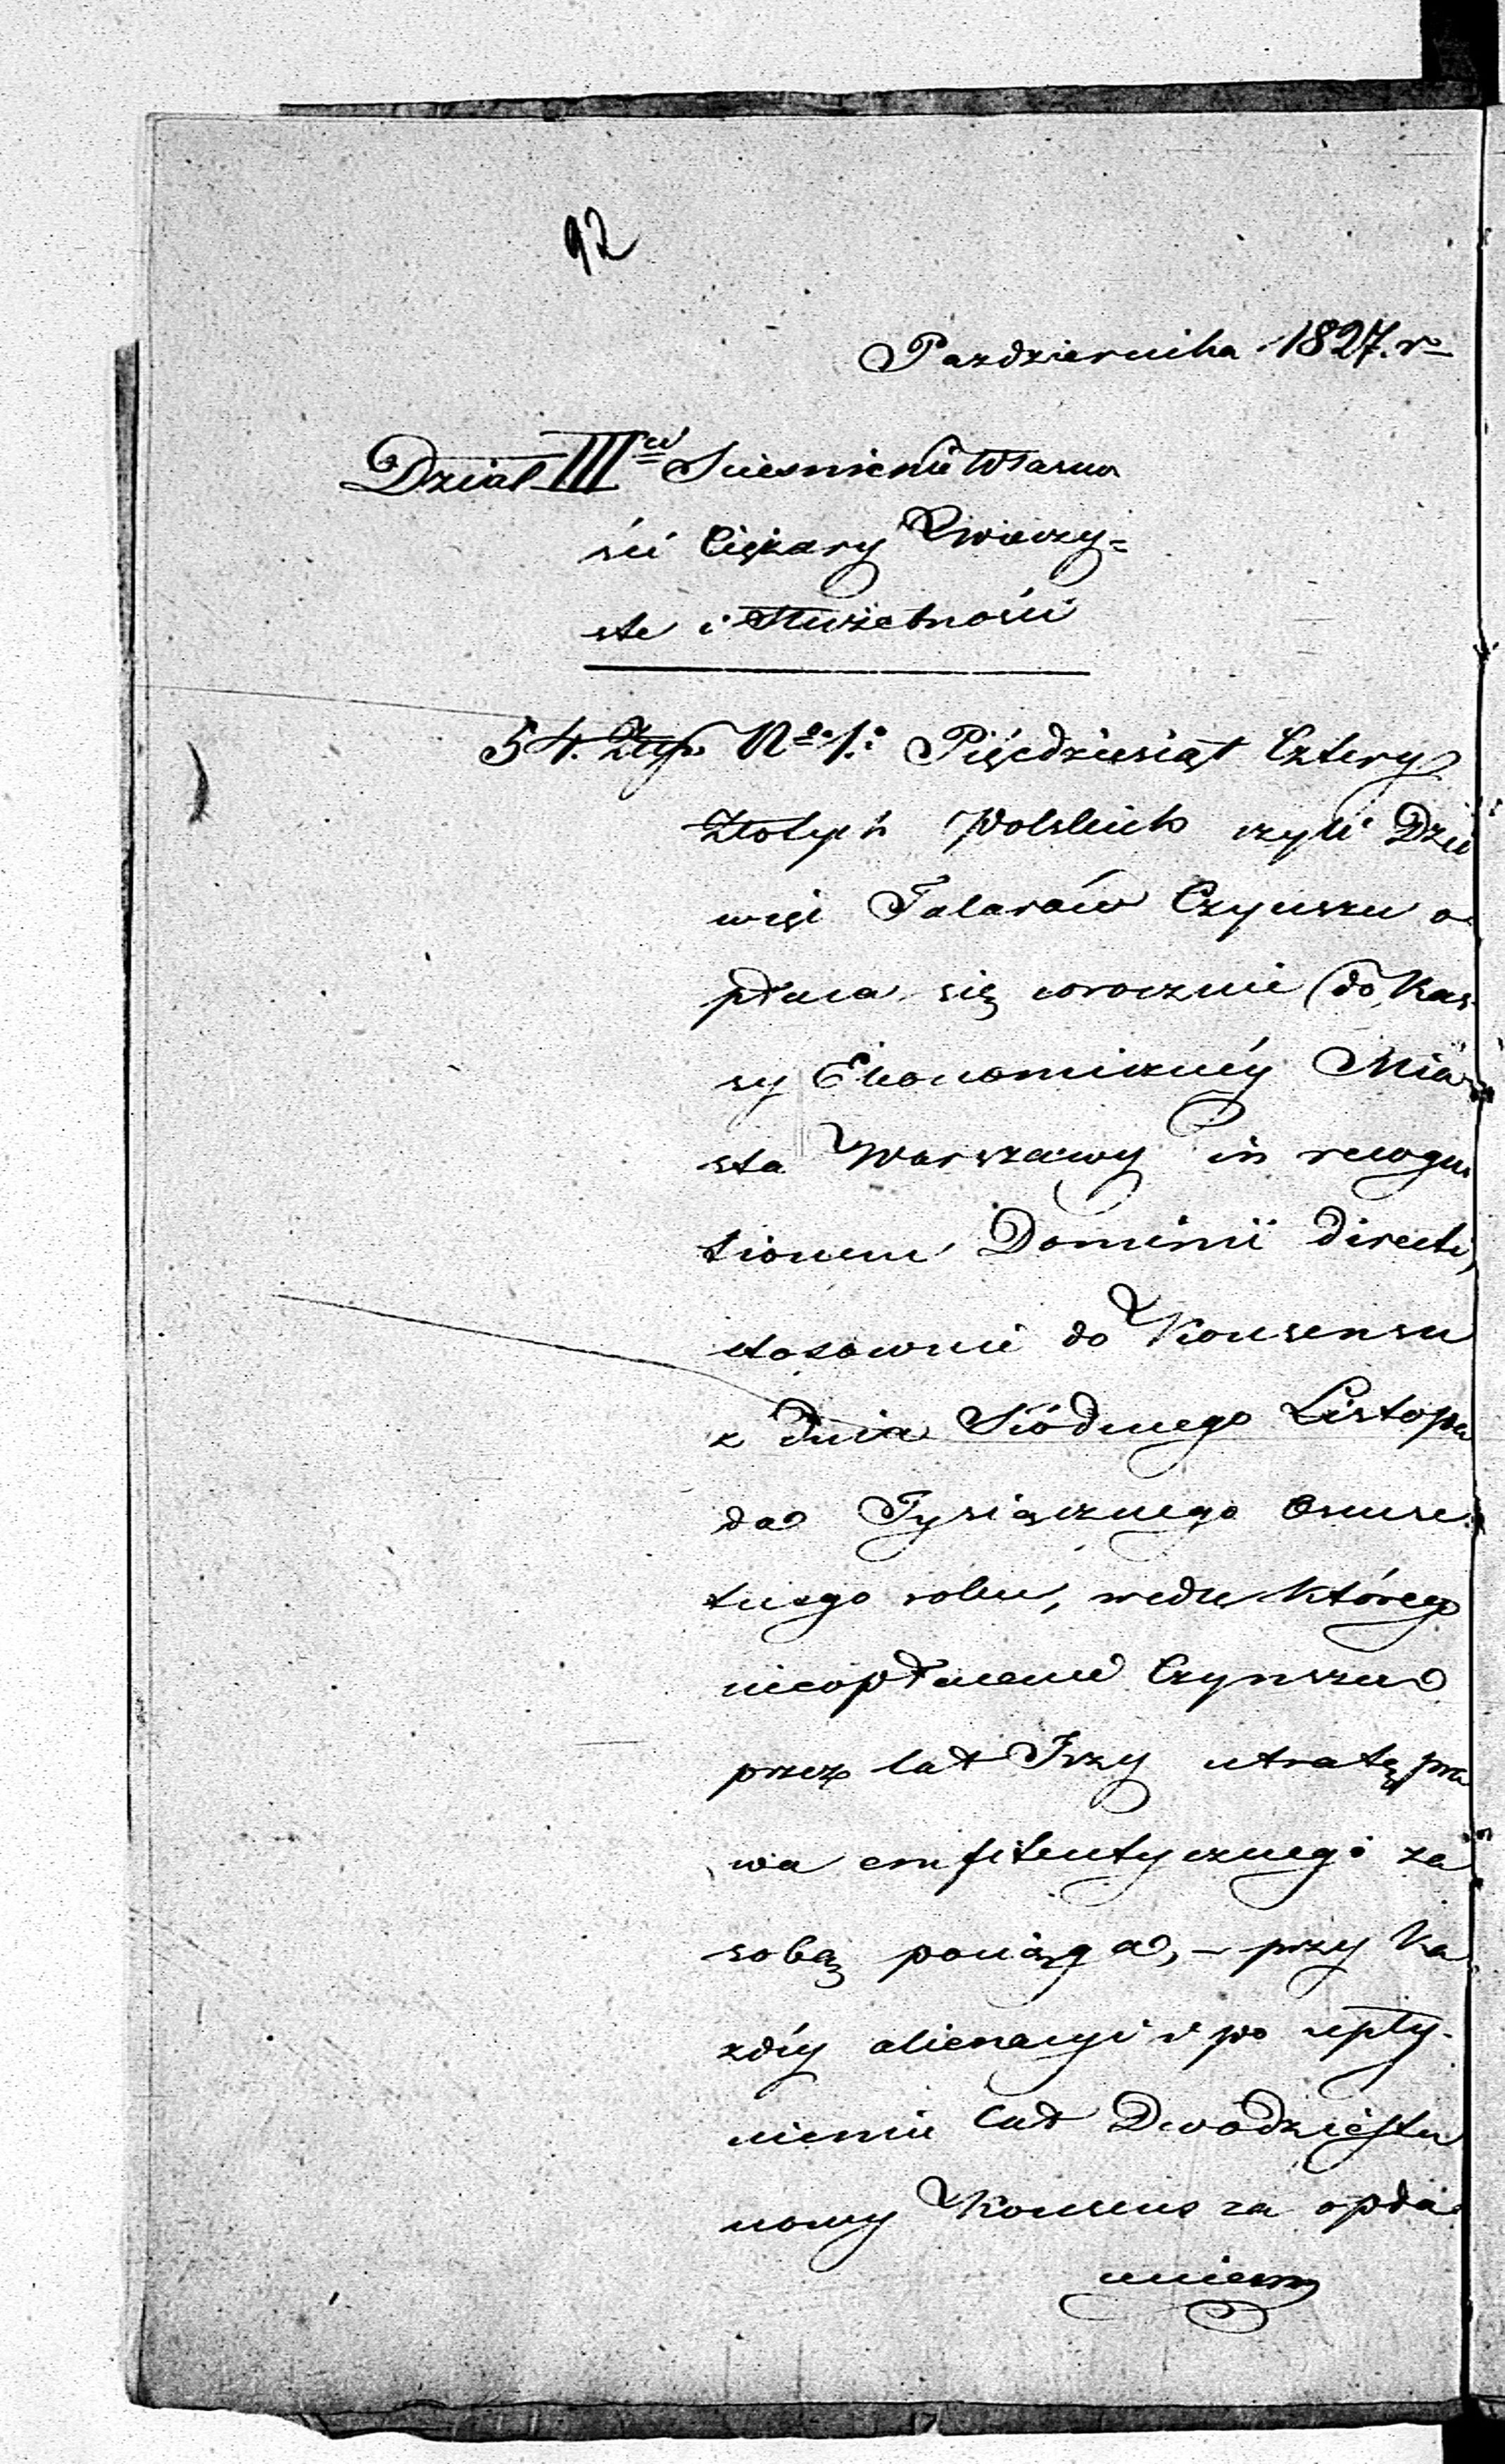 92
Pazdziernika 1827. r
Dział III ci Scieśnienie Własno
ści Ciężary Wieczy=
ste i Służebności
54. Złp. No. 1o Pięćdziesiąt Cztery
Złotych Polskich czyli Dzie
więć Talarów Czynszu o
płaca się corocznie do Kas
sy Ekonomicznéy Mia
sta Warszawy in recogni
tionem Dominii directi,
stosownie do Konsensu
z dnia Siódmego Listopa
da Tysiącznego Osmse
tnego roku, wedle którego
nieopłacenie Czynszu
przez lat Trzy utratę pra
wa emfiteutycznego za
sobą pociąga, – przy Ka
zdéy alienacyi i po upły
nieniu lat Dwódziestu
nowy Konsens za opła
ceniem